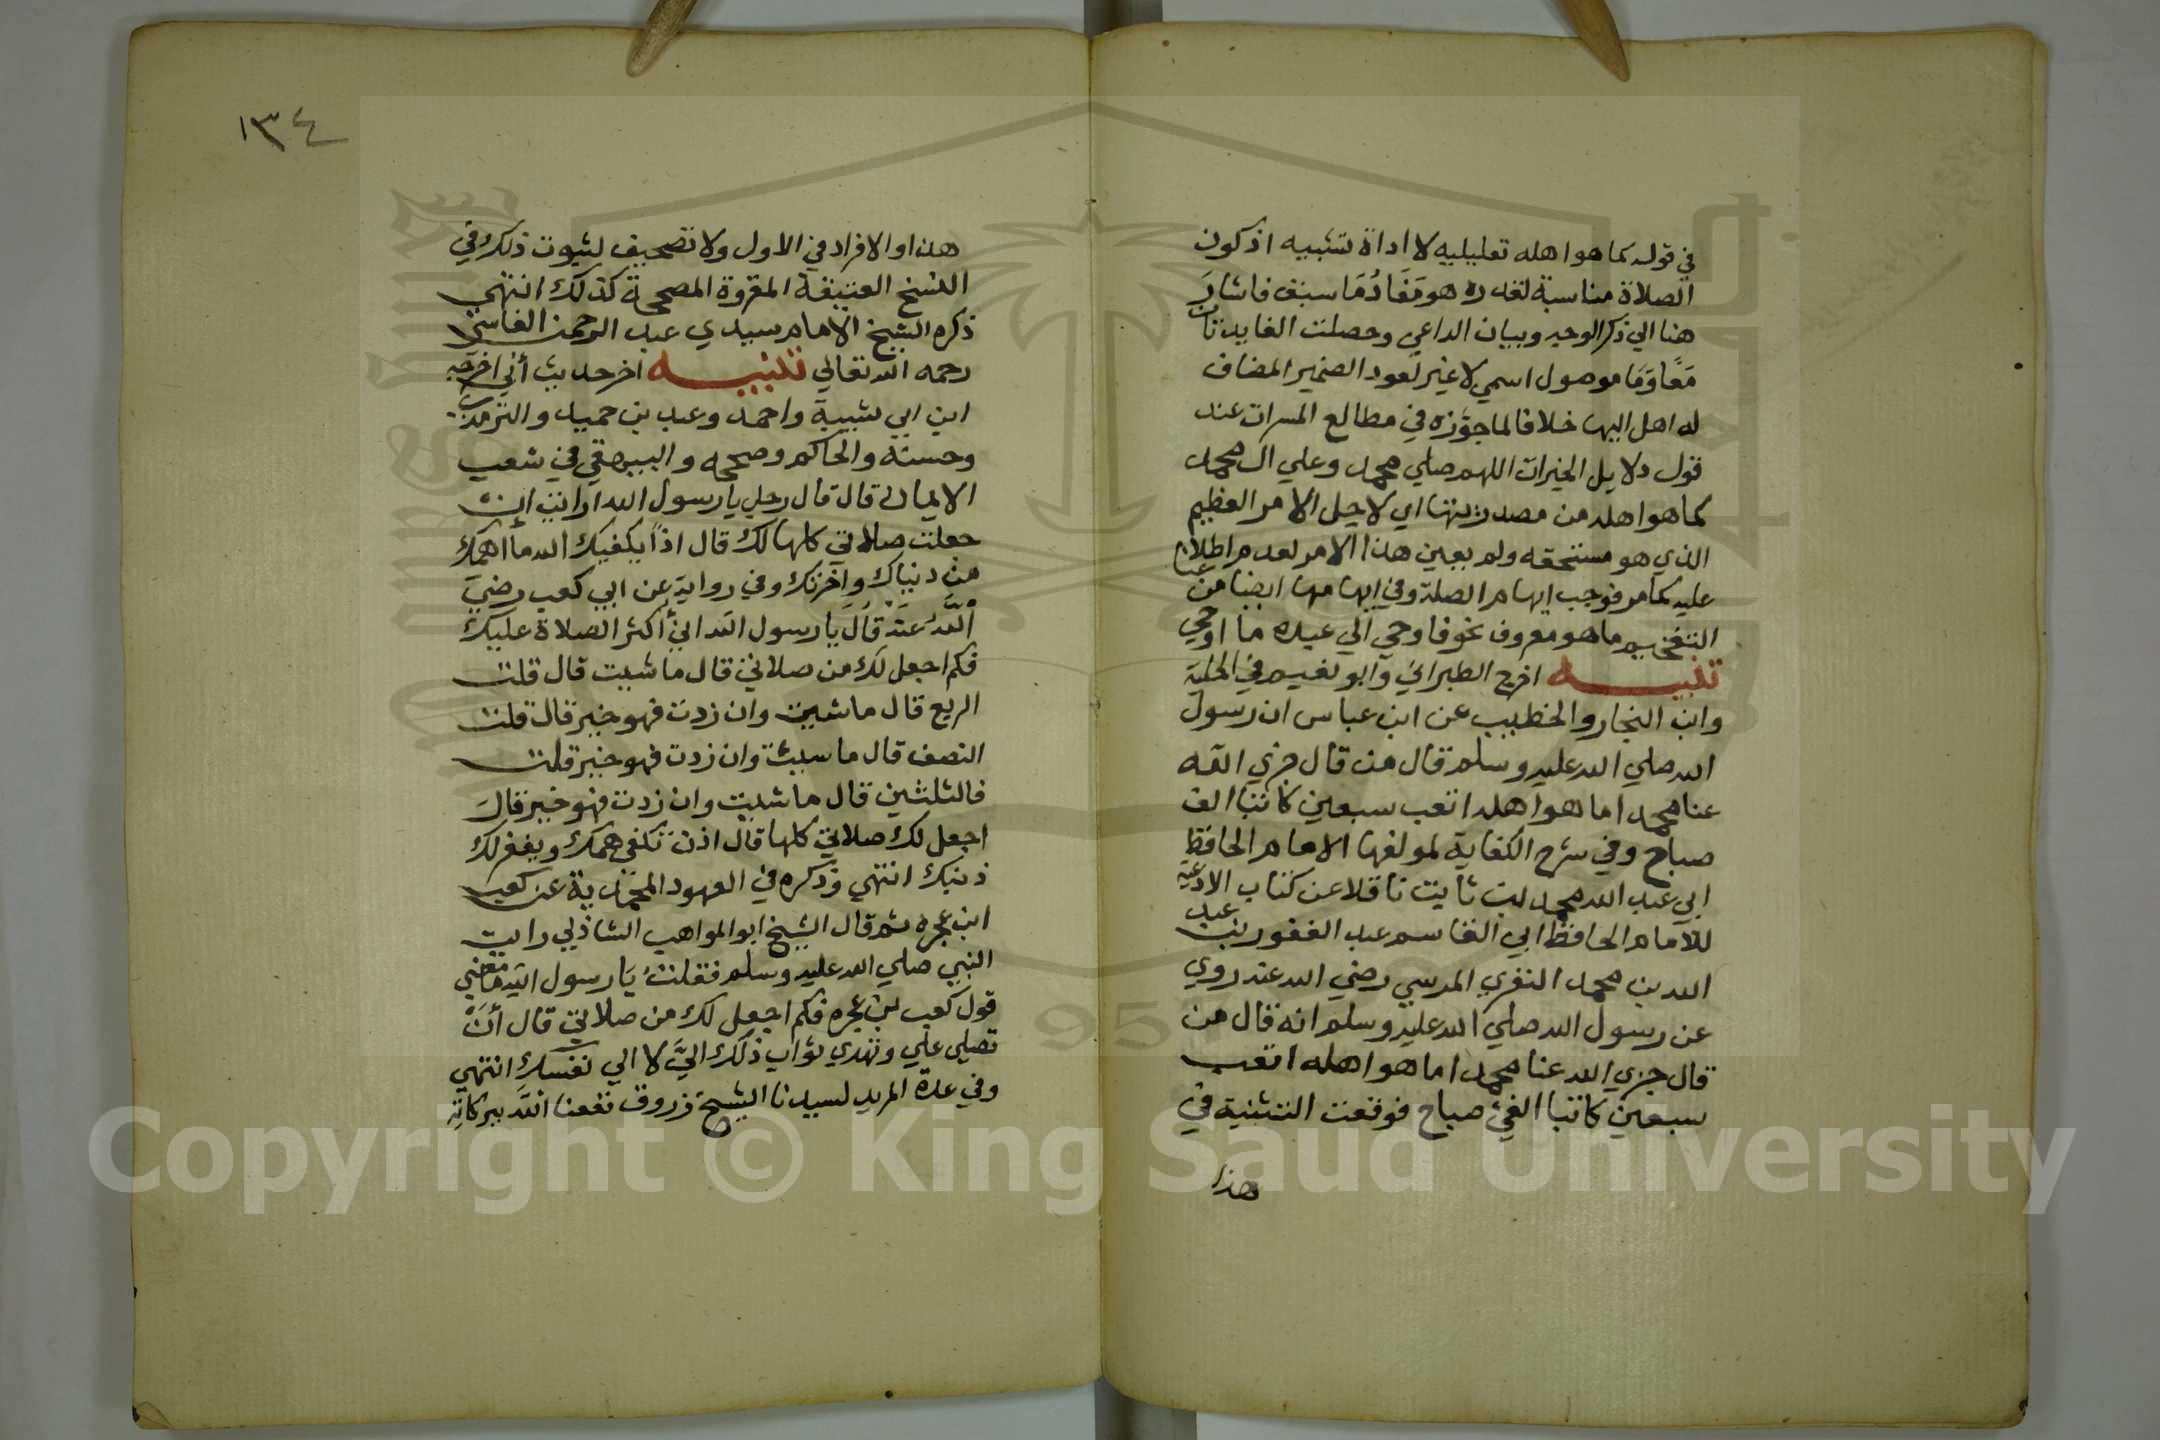 في قوله كما هو اهله تعليليه لا اداة تشبيه اذ كون
الصلاة مناسبة لقدره هو مَفَادُ مَا سبق فاشارَ
هنا الي ذكر الوجه وبيان الداعي وحصلت الفايدتان
مَعًا وَمَا موصول اسمي لا غير لعود الضمير المضاف
له اهل اليها خلافا لما جوّزه في مطالع المسرات عند
قول دلايل الخيرات اللهم صلي محمد وعلي ال محمد
كما هو اهله من مصدريتها اي لاجل الامر العظيم
الذي هو مستحقه ولم يعين هذا الامر لعدم اطلاعنا
عليه كما مر فوجب ابهام الصلة وفي ابهامها ايضا من
التفخيم ما هو معروف نحو فاوحي الي عبده ما اوحي
تنبيه اخرج الطبراني وابو نعيم في الحلية
وابن النجار والخطيب عن ابن عباس ان رسول
الله صلي الله عليه وسلم قال من قال جزي الله
عنا محمدا ما هو اهله اتعب سبعين كاتبا الف
صباح وفي شرح الكفاية لمولفها الامام الحافظ
ابي عبد الله محمد بن ثابت ناقلا عن كتاب الادعيه
للامام الحافظ ابي القاسم عبد الغفور بن عبد
الله بن محمد النفزي المرسي رضي الله عنه روي
عن رسول الله صلي الله عليه وسلم انه قال من
قال جزي الله عنا محمدا ما هو اهله اتعب
سبعين كاتبا الفي صباح فوقعت التثنية في
هذا
١٣٤
هذا والافراد في الاول ولا تصحيف لثبوت ذلك في
النسخ العتيقة المقروة المصححة كذلك انتهي
ذكره الشيخ الامام سيدي عبد الرحمن الفاسي
رحمه الله تعالي تنبيه اخر حديث أُبي اخرجه
ابن ابي شيبة واحمد وعبد بن حميد والترمذي
وحسنه والحاكم وصححه والبيهقي في شعب
الايمان قال قال رجل يا رسول الله ارايت ان
جعلت صلاتي كلها لك قال اذاً يكفيك الله ما اهمك
من دنياك وآخرتك وفي رواية عن ابي كعب رضي
اللهُ عَنهْ قالَ يا رسول الله اني أكثر الصلاة عليك
فكم اجعل لك من صلاتي قال ما شيت قال قلت
الربع قال ما شيت وان زدت فهو خير قال قلت
النصف قال ما شيت وان زدت فهو خير قلت
فالثلثين قال ما شيت وان زدت فهو خير قالَ
اجعل لك صلاتي كلها قال اذن تكفي همك ويغفر لك
ذنبك انتهي وذكره في العهود المحمدية عن كعب
ابن عجره ثم قال الشيخ ابو المواهب الشاذلي رايت
النبي صلي الله عليه وسلم فقلتُ يَا رسول الله ما معني
قول كعب بن عجره فكم اجعل لك من صلاتي قال أنَْ
تصلي علي وتهدي ثواب ذلك اليَّ لا الي نفسك انتهي
وفي عدة المريد لسيدنا الشيخ زروق نفعنا الله ببركاتِهِ
Copyright © King Saud University